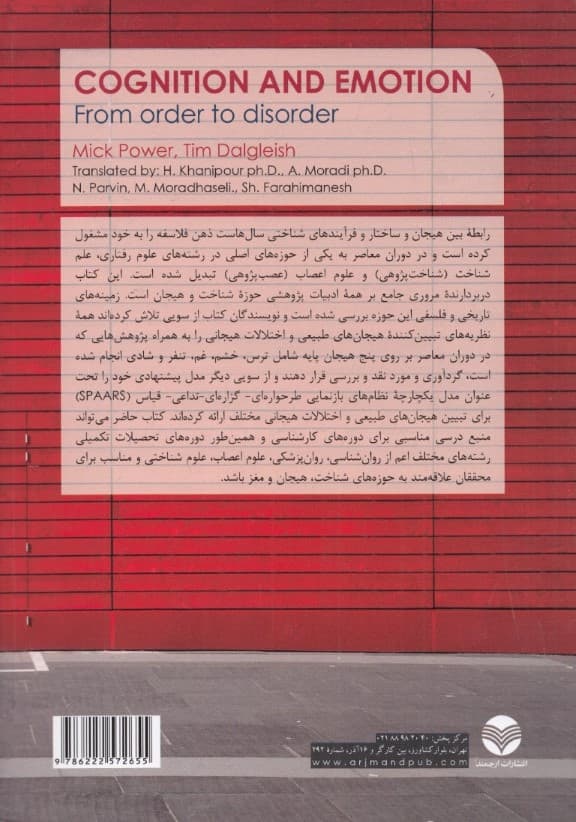 COGNITION AND EMOTION
From order to disorder
Mick Power, Tim Dalgleish
Translated by: H. Khanipour ph.D., A. Moradi ph.D.
N. Parvin, M. Moradhaseli., Sh. Farahimanesh
رابطهٔ بین هیجان و ساختار و فرآیندهای شناختی سال‌هاست ذهن فلاسفه را به خود مشغول
کرده است و در دوران معاصر به یکی از حوزه‌های اصلی در رشته‌های علوم رفتاری، علم
شناخت (شناخت‌پژوهی) و علوم اعصاب (عصب‌پژوهی) تبدیل شده است. این کتاب
دربردارندهٔ مروری جامع بر همهٔ ادبیات پژوهشی حوزهٔ شناخت و هیجان است. زمینه‌های
تاریخی و فلسفی این حوزه بررسی شده است و نویسندگان کتاب از سویی تلاش کرده‌اند همهٔ
نظریه‌های تبیین‌کنندهٔ هیجان‌های طبیعی و اختلالات هیجانی را به همراه پژوهش‌هایی که
در دوران معاصر بر روی پنج هیجان پایه شامل ترس، خشم، غم، تنفر و شادی انجام شده
است، گردآوری و مورد نقد و بررسی قرار دهند و از سویی دیگر مدل پیشنهادی خود را تحت
عنوان مدل یکپارچهٔ نظام‌های بازنمایی طرحواره‌ای- گزاره‌ای-تداعی- قیاس (SPAARS)
برای تبیین هیجان‌های طبیعی و اختلالات هیجانی مختلف ارائه کرده‌اند. کتاب حاضر می‌تواند
منبع درسی مناسبی برای دوره‌های کارشناسی و همین‌طور دوره‌های تحصیلات تکمیلی
رشته‌های مختلف اعم از روان‌شناسی، روان‌پزشکی، علوم اعصاب، علوم شناختی و مناسب برای
محققان علاقه‌مند به حوزه‌های شناخت، هیجان و مغز باشد.
مرکز پخش: ۴۰ ۲۰ ۹۸ ۸۸ ۰۲۱
تهران، بلوار کشاورز، بین کارگر و ۱۶ آذر، شماره ۲۹۲
www.arjmandpub.com
انتشارات ارجمند
9 786222 572655